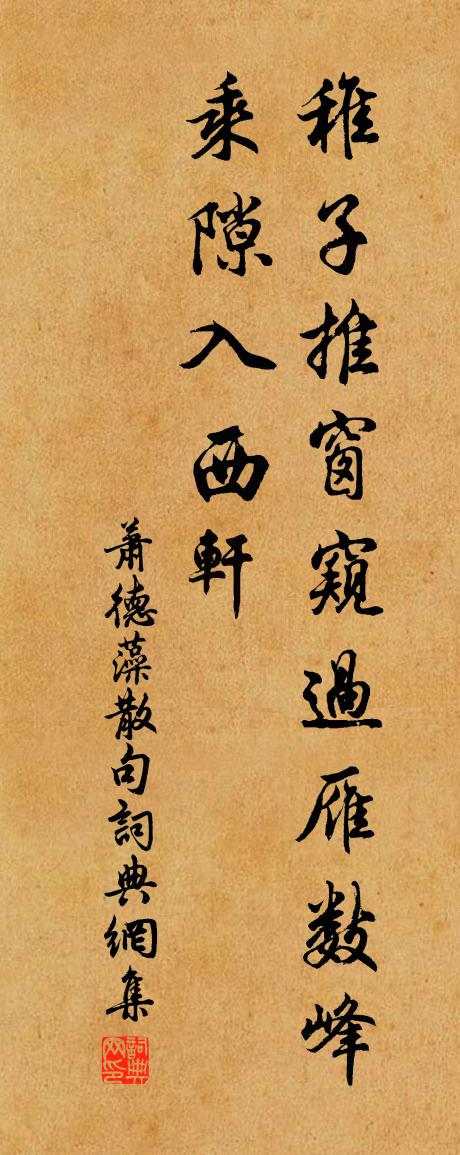 稚子推窗窺過雁数峰
乘隙入西軒
蕭德藻散句詞典網集
詞典
网印